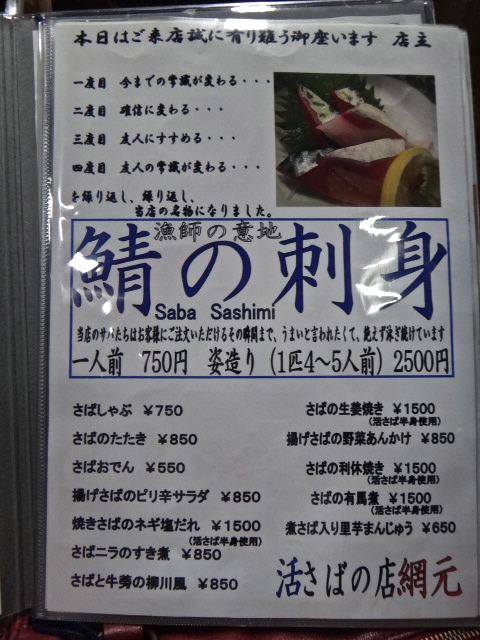 本日はご来店誠に有り難う御座います 店主
一度目 今までの常識が変わる・・・
二度目 確信に変わる・・・
三度目 友人にすすめる・・・
四度目 友人の常識が変わる・・・
を繰り返し、繰り返し、
当店の名物になりました。
漁師の意地
鯖の刺身
Saba Sashimi
当店のサバたちはお客様にご注文いただけるその瞬間まで、うまいと言われたくて、絶えず泳ぎ続けています
一人前 750円 姿造り (1匹4〜5人前) 2500円
さばしゃぶ ¥750
さばのたたき ¥850
さばおでん ¥550
揚げさばのピリ辛サラダ ¥850
焼きさばのネギ塩だれ ¥1500
(活さば半身使用)
さばニラのすき煮 ¥850
さばと牛蒡の柳川風 ¥850
さばの生姜焼き ¥1500
(活さば半身使用)
揚げさばの野菜あんかけ ¥850
さばの利休焼き ¥1500
(活さば半身使用)
さばの有馬煮 ¥1500
(活さば半身使用)
煮さば入り里芋まんじゅう ¥650
活さばの店網元